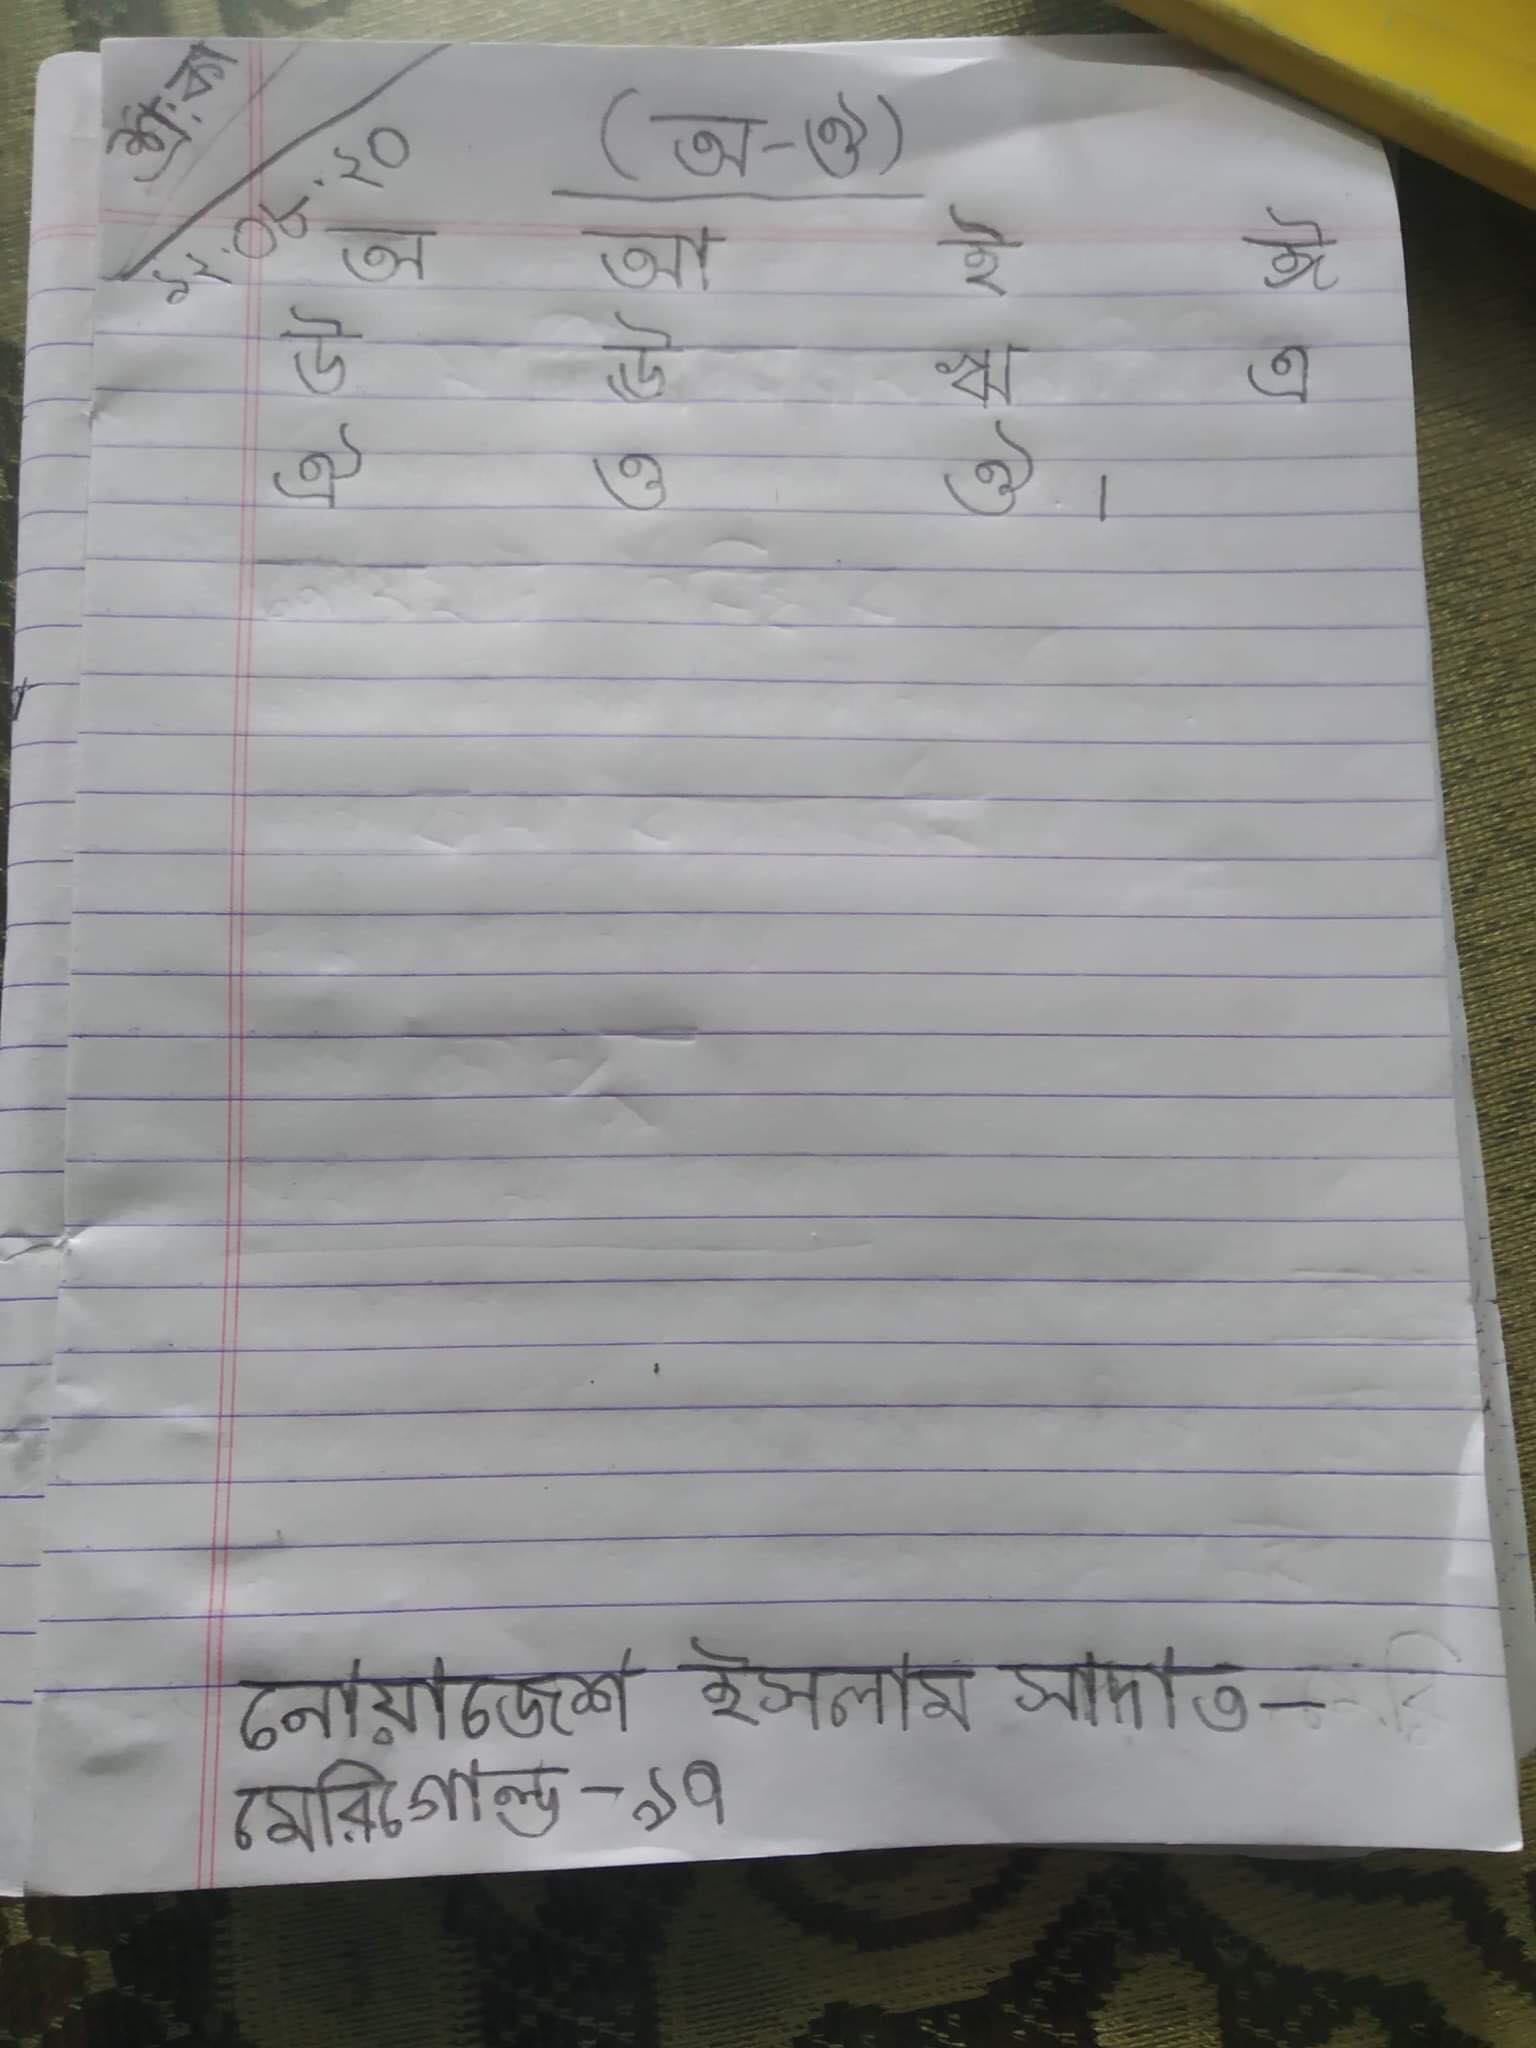 শ্রে:কা
১২.০৮.২০
(অ-ঔ)
অ আ ই ঈ
উ ঊ ঋ এ
ঐ ও ঔ ।
নোয়াজেশ ইসলাম সাদাত-
মেরিগোল্ড-১৭